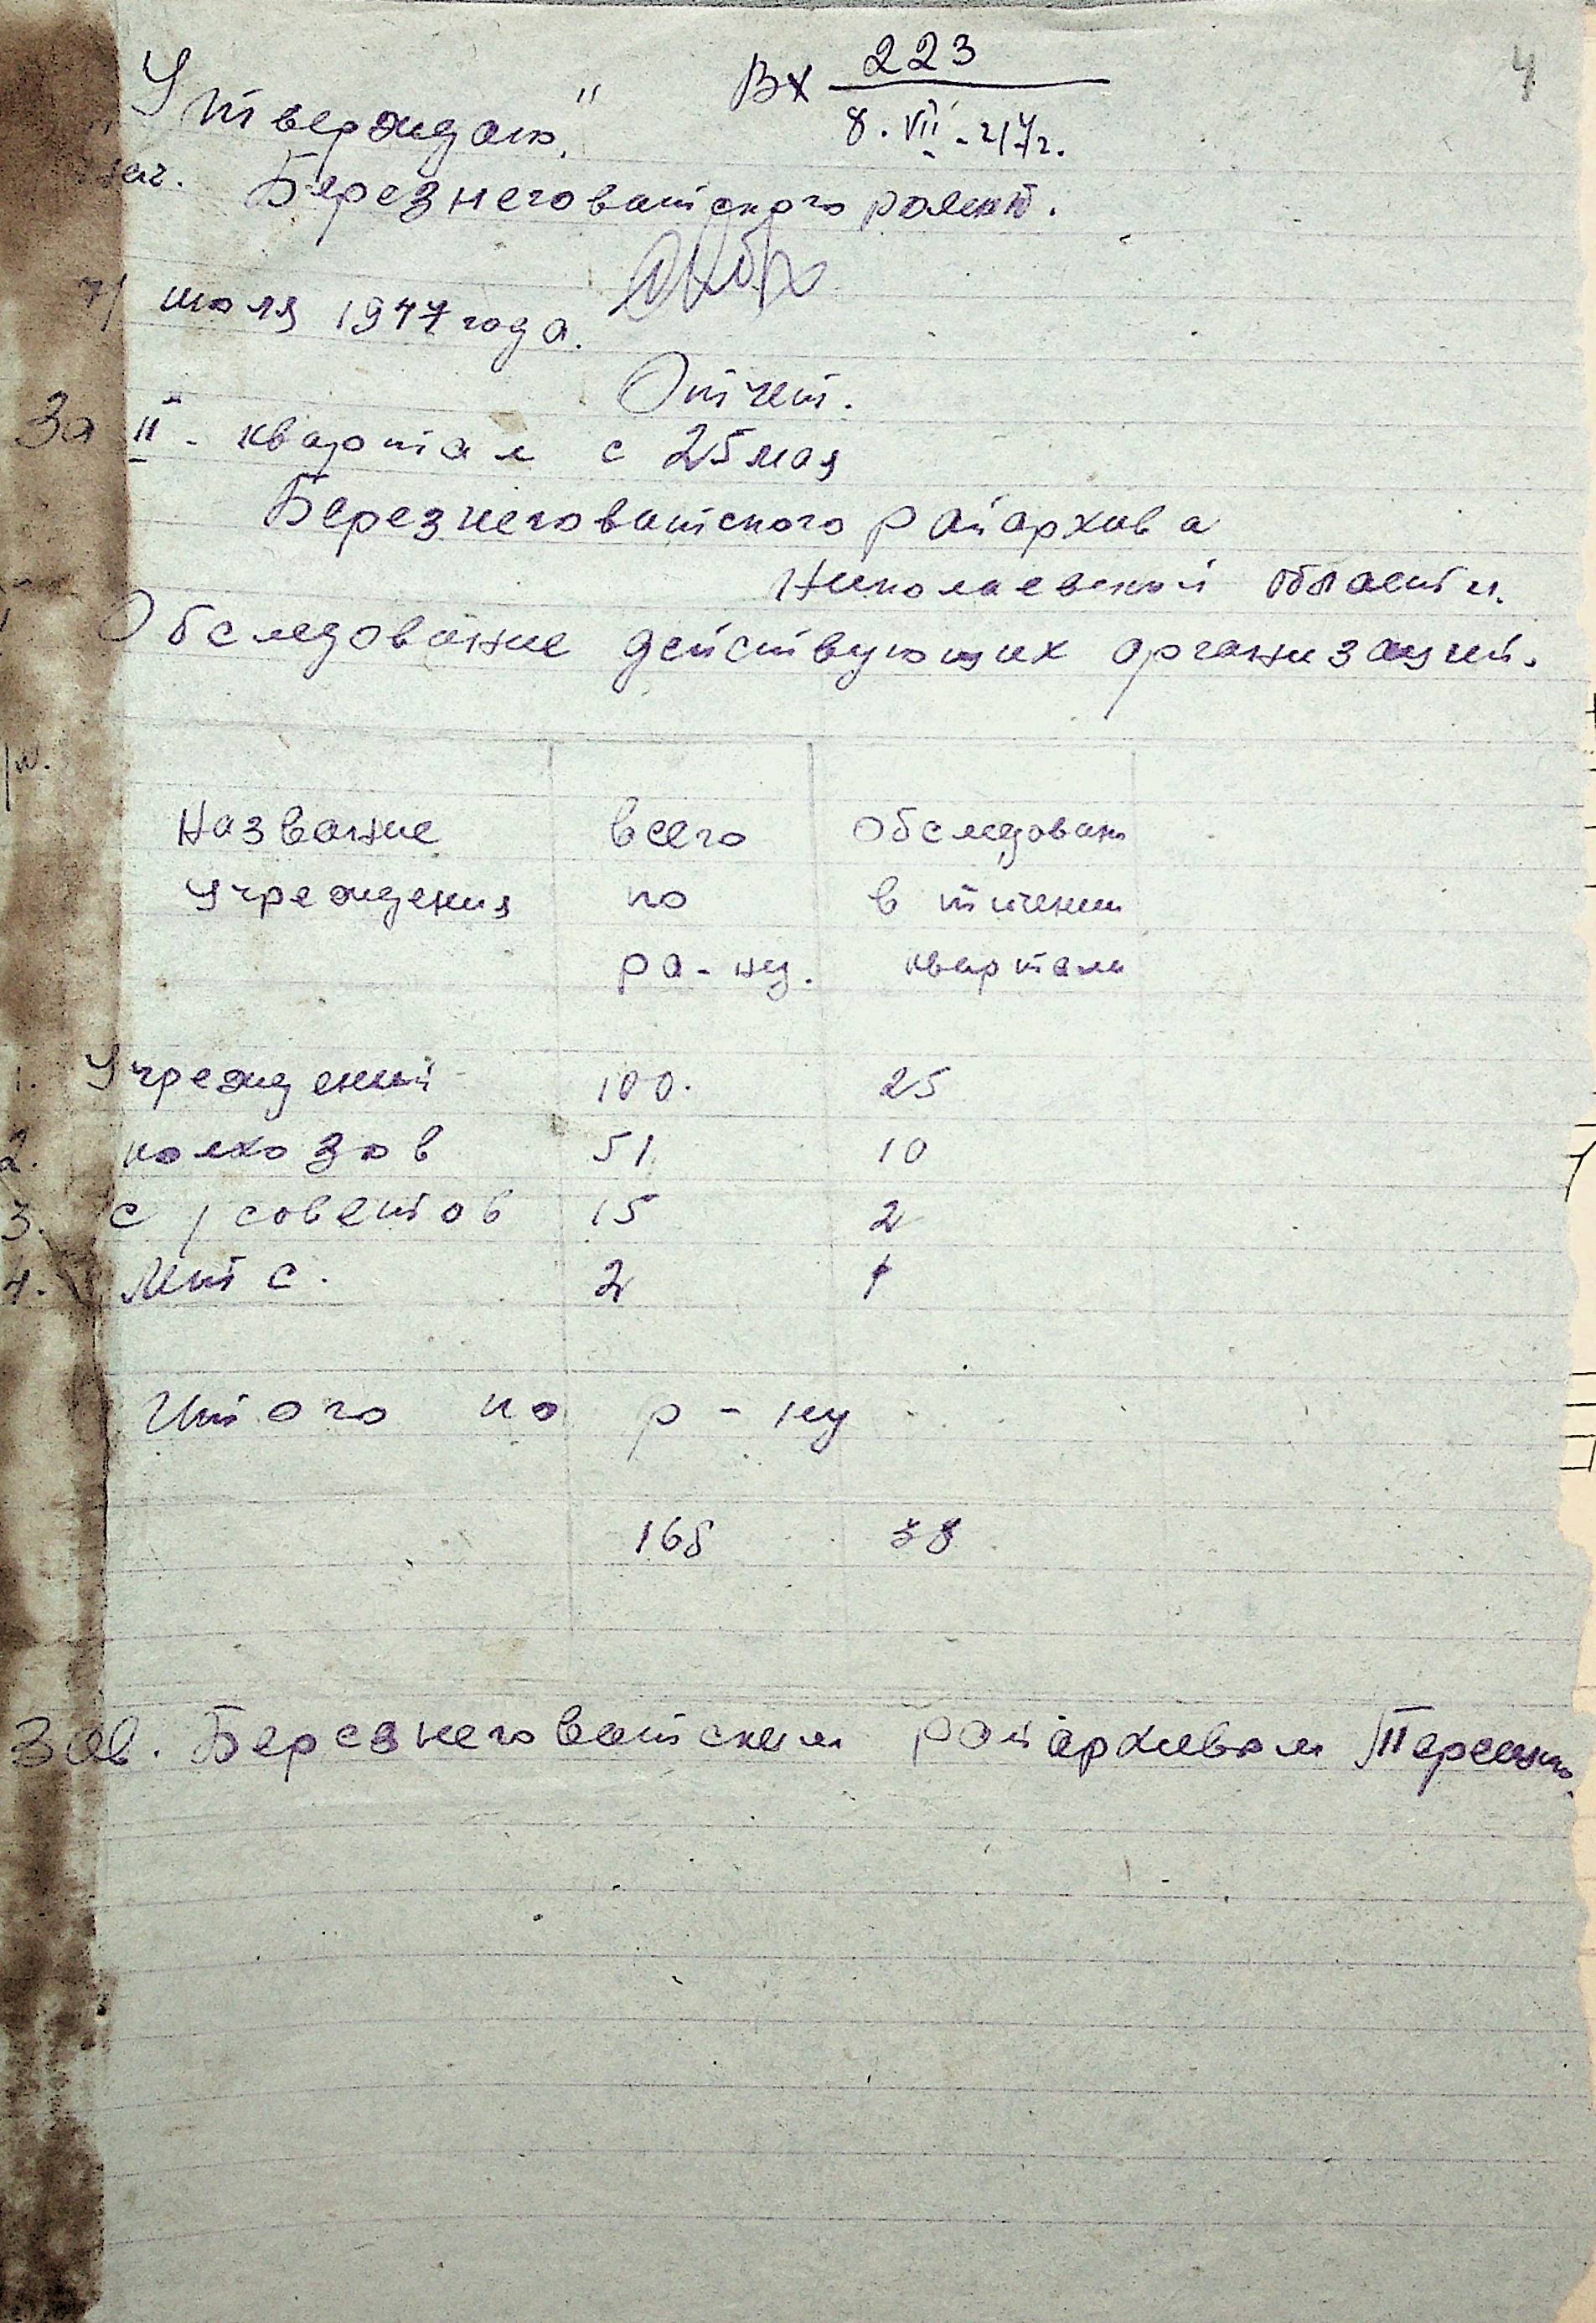 4
Вх 223
8.VII-47г.
"Утверждаю"
Нач. Березнеговатского
7/ июля 1947 года.
Отчет.
За II-квартал с 25 мая
Березнеговатского райархива
Николаевской области.
Обследование действующих организаций.
Название всего обследован
учреждения по в течении
ра-ну. квартала
1. Учреждений 100. 25
2. колхозов 51 10
3. с/советов 15 2
4. Мтс. 2 1
Итого по р-ну
168 38
Зав. Березнеговатским райархивом